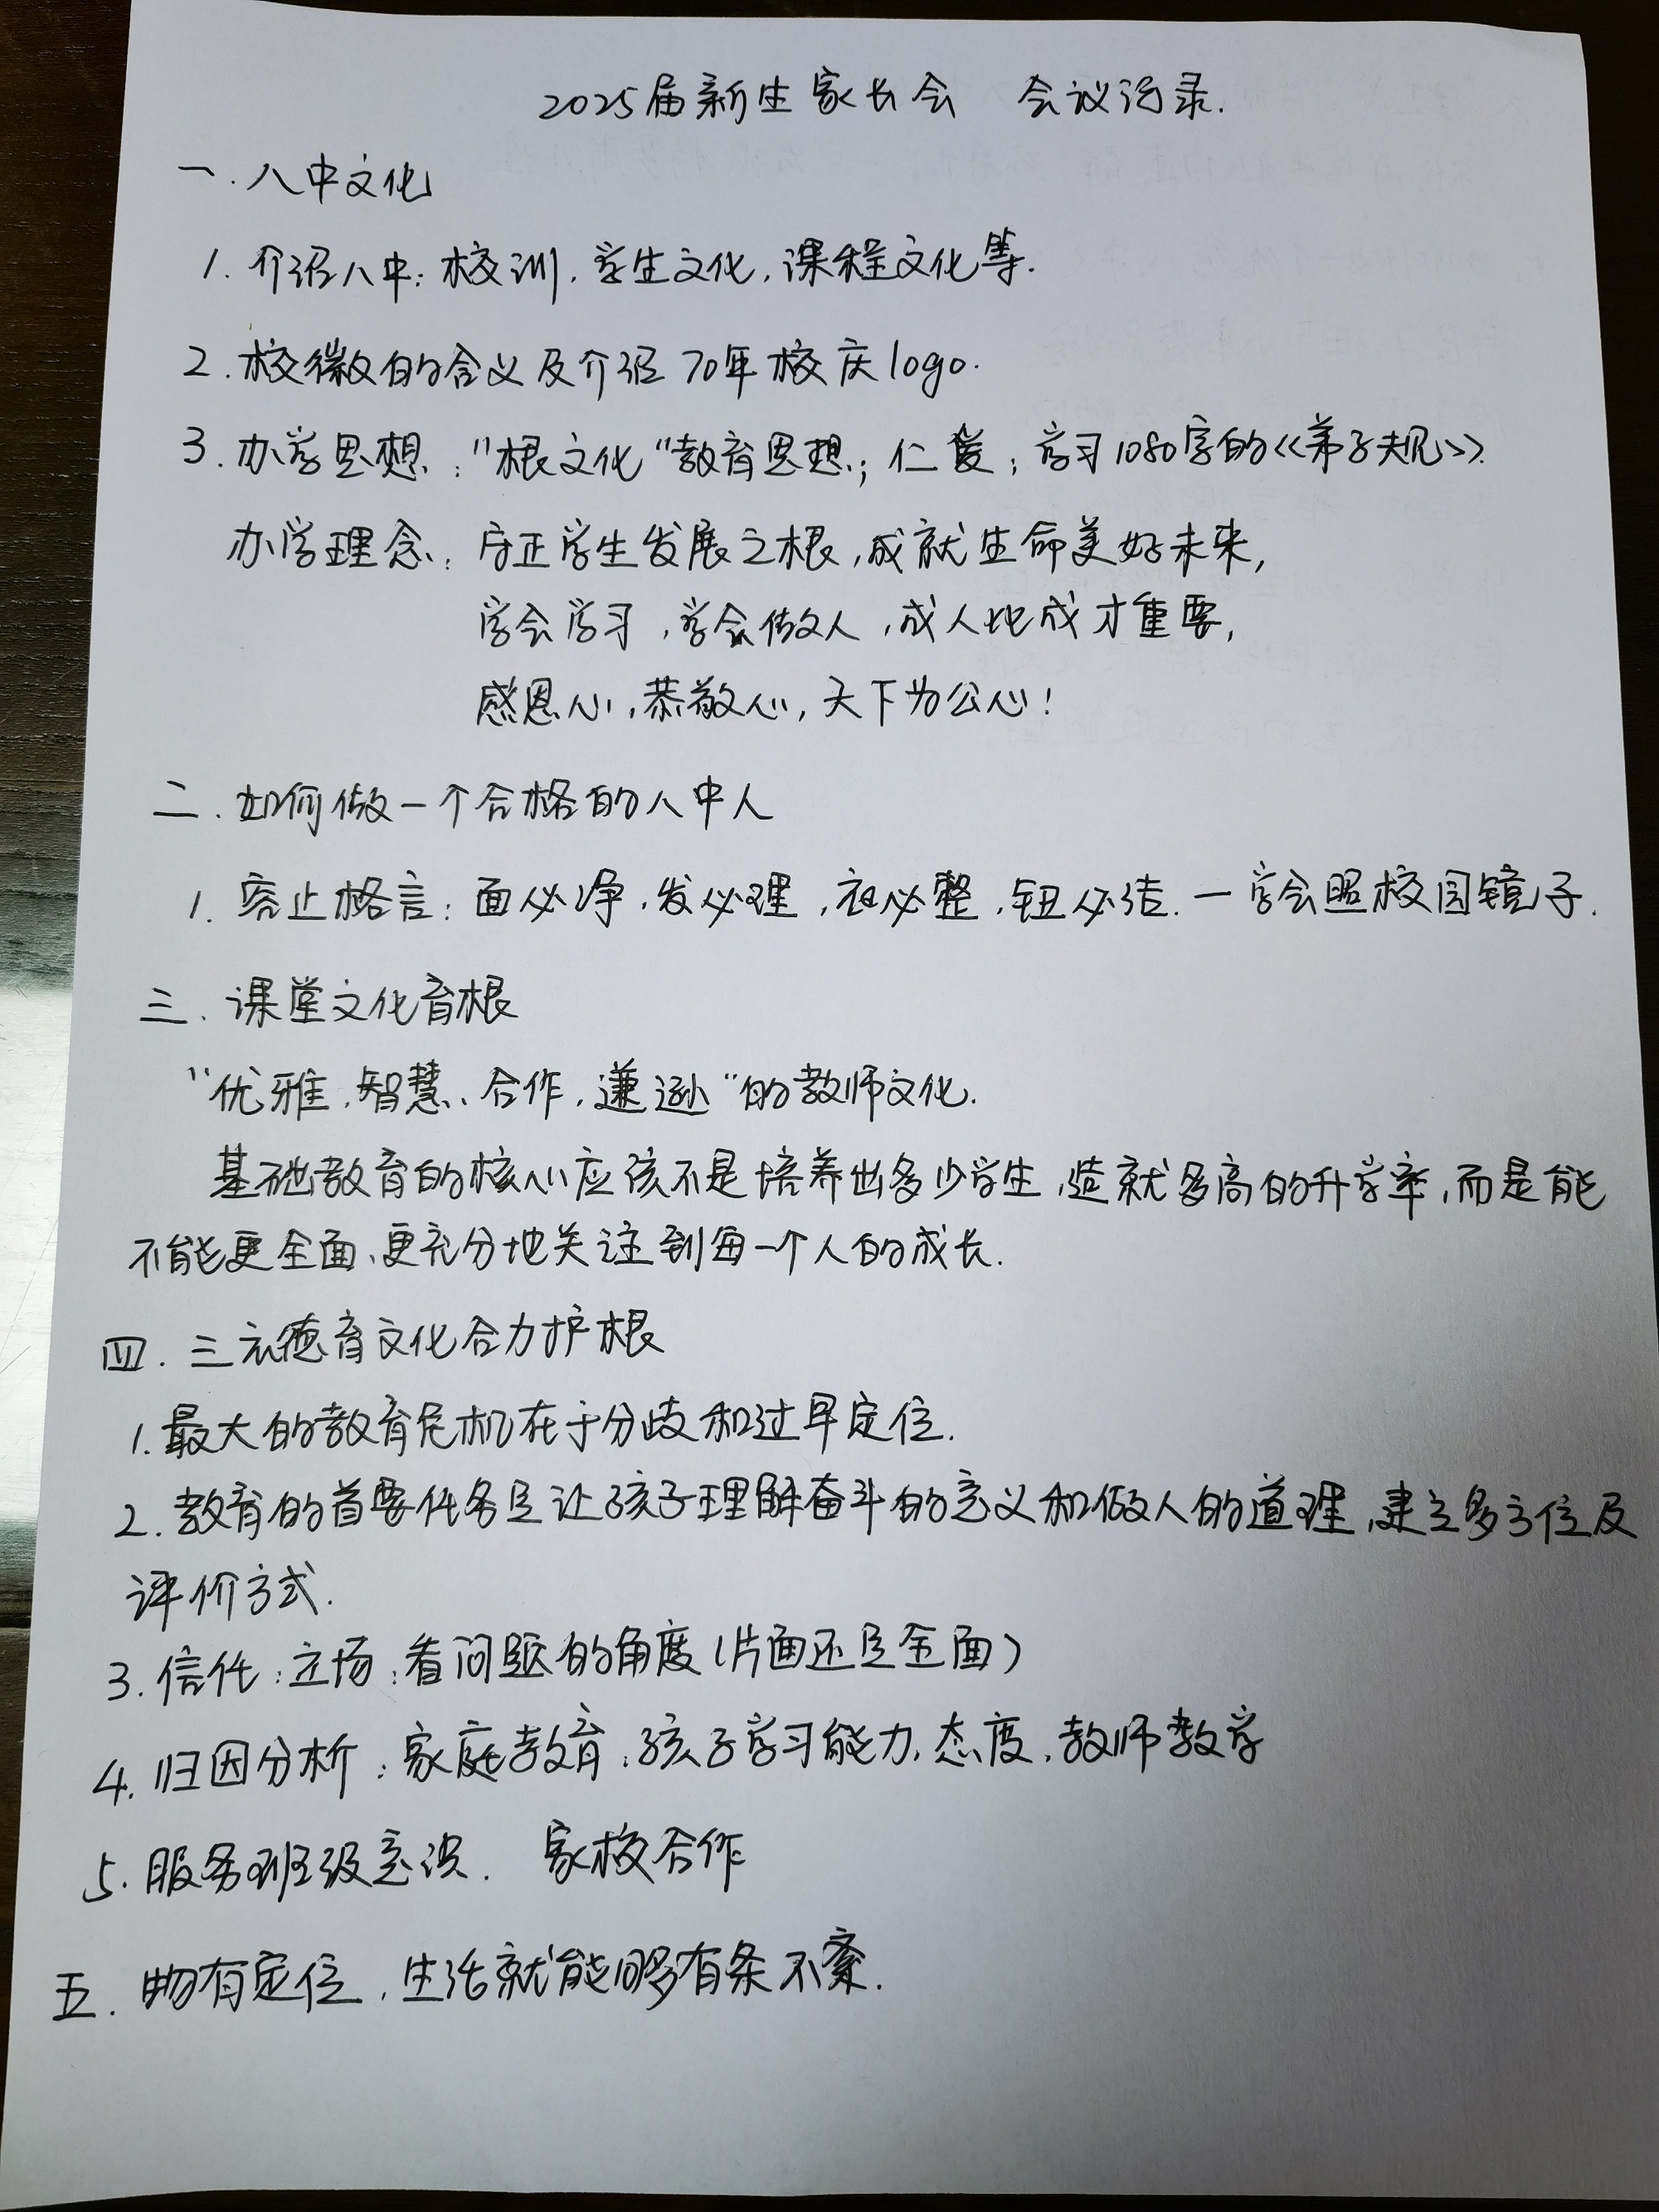 2025届新生家长会 会议记录.
一.八中文化
1.介绍八中:校训,学生文化,课程文化等.
2.校徽的含义及介绍70年校庆logo.
3.办学思想:"根文化"教育思想;仁爱;学习1080字的《弟子规》.
办学理念:守正学生发展之根,成就生命美好未来,
学会学习,学会做人,成人比成才重要,
感恩心,恭敬心,天下为公心!
二.如何做一个合格的八中人
1.容止格言:面必净,发必理,衣必整,钮必结.一学会照校园镜子.
三.课堂文化育根
"优雅,智慧、合作,谦逊"的教师文化.
基础教育的核心应该不是培养出多少学生,造就多高的升学率,而是能
不能更全面、更充分地关注到每一个人的成长.
四.三元德育文化合力护根
1.最大的教育危机在于分歧和过早定位.
2.教育的首要任务是让孩子理解奋斗的意义和做人的道理,建立多方位及
评价方式.
3.信任:立场:看问题的角度(片面还是全面)
4.归因分析:家庭教育,孩子学习能力,态度,教师教学
5.服务班级意识. 家校合作
五.物有定位,生活就能够有条不紊.